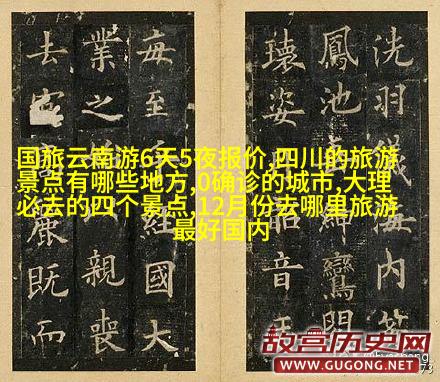 洗羽儀海內
鳳池鸞閣
瓌姿音
每至經國大
業之親喪
去既而
国旅云南游6天5夜报价,四川的旅游
景点有哪些地方,0确诊的城市,大理
必去的四个景点,12月份去哪里旅游
最好国内
故宫历史网
WWW.GUGONG.NET